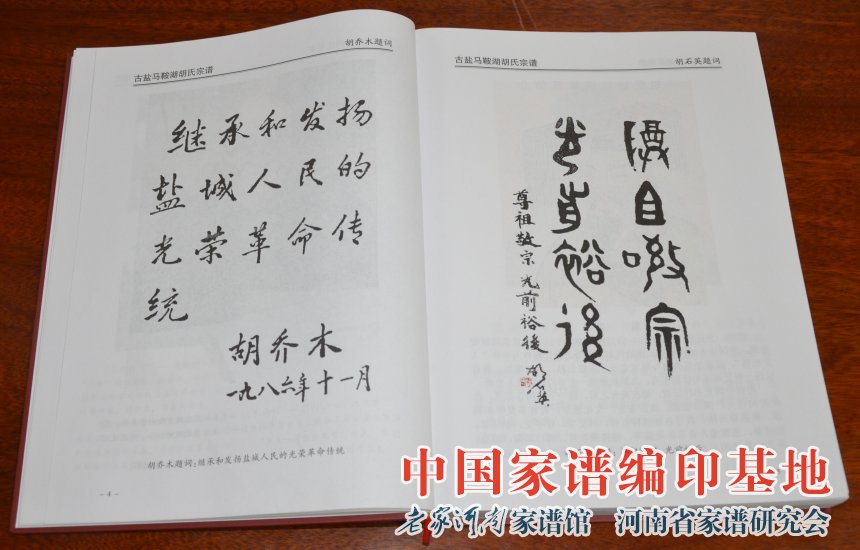 古盐马鞍湖胡氏宗谱
胡乔木题词
继承和发扬
盐城人民的
光荣革命传
统
胡乔木
一九八六年十一月
胡乔木题词:继承和发扬盐城人民的光荣革命传统
- 4 -
古盐马鞍湖胡氏宗谱
胡石英题词
尊祖敬宗
光前裕後
尊祖敬宗 光前裕後 胡石英
中国家谱编印基地
老家河南家谱馆 河南省家谱研究会